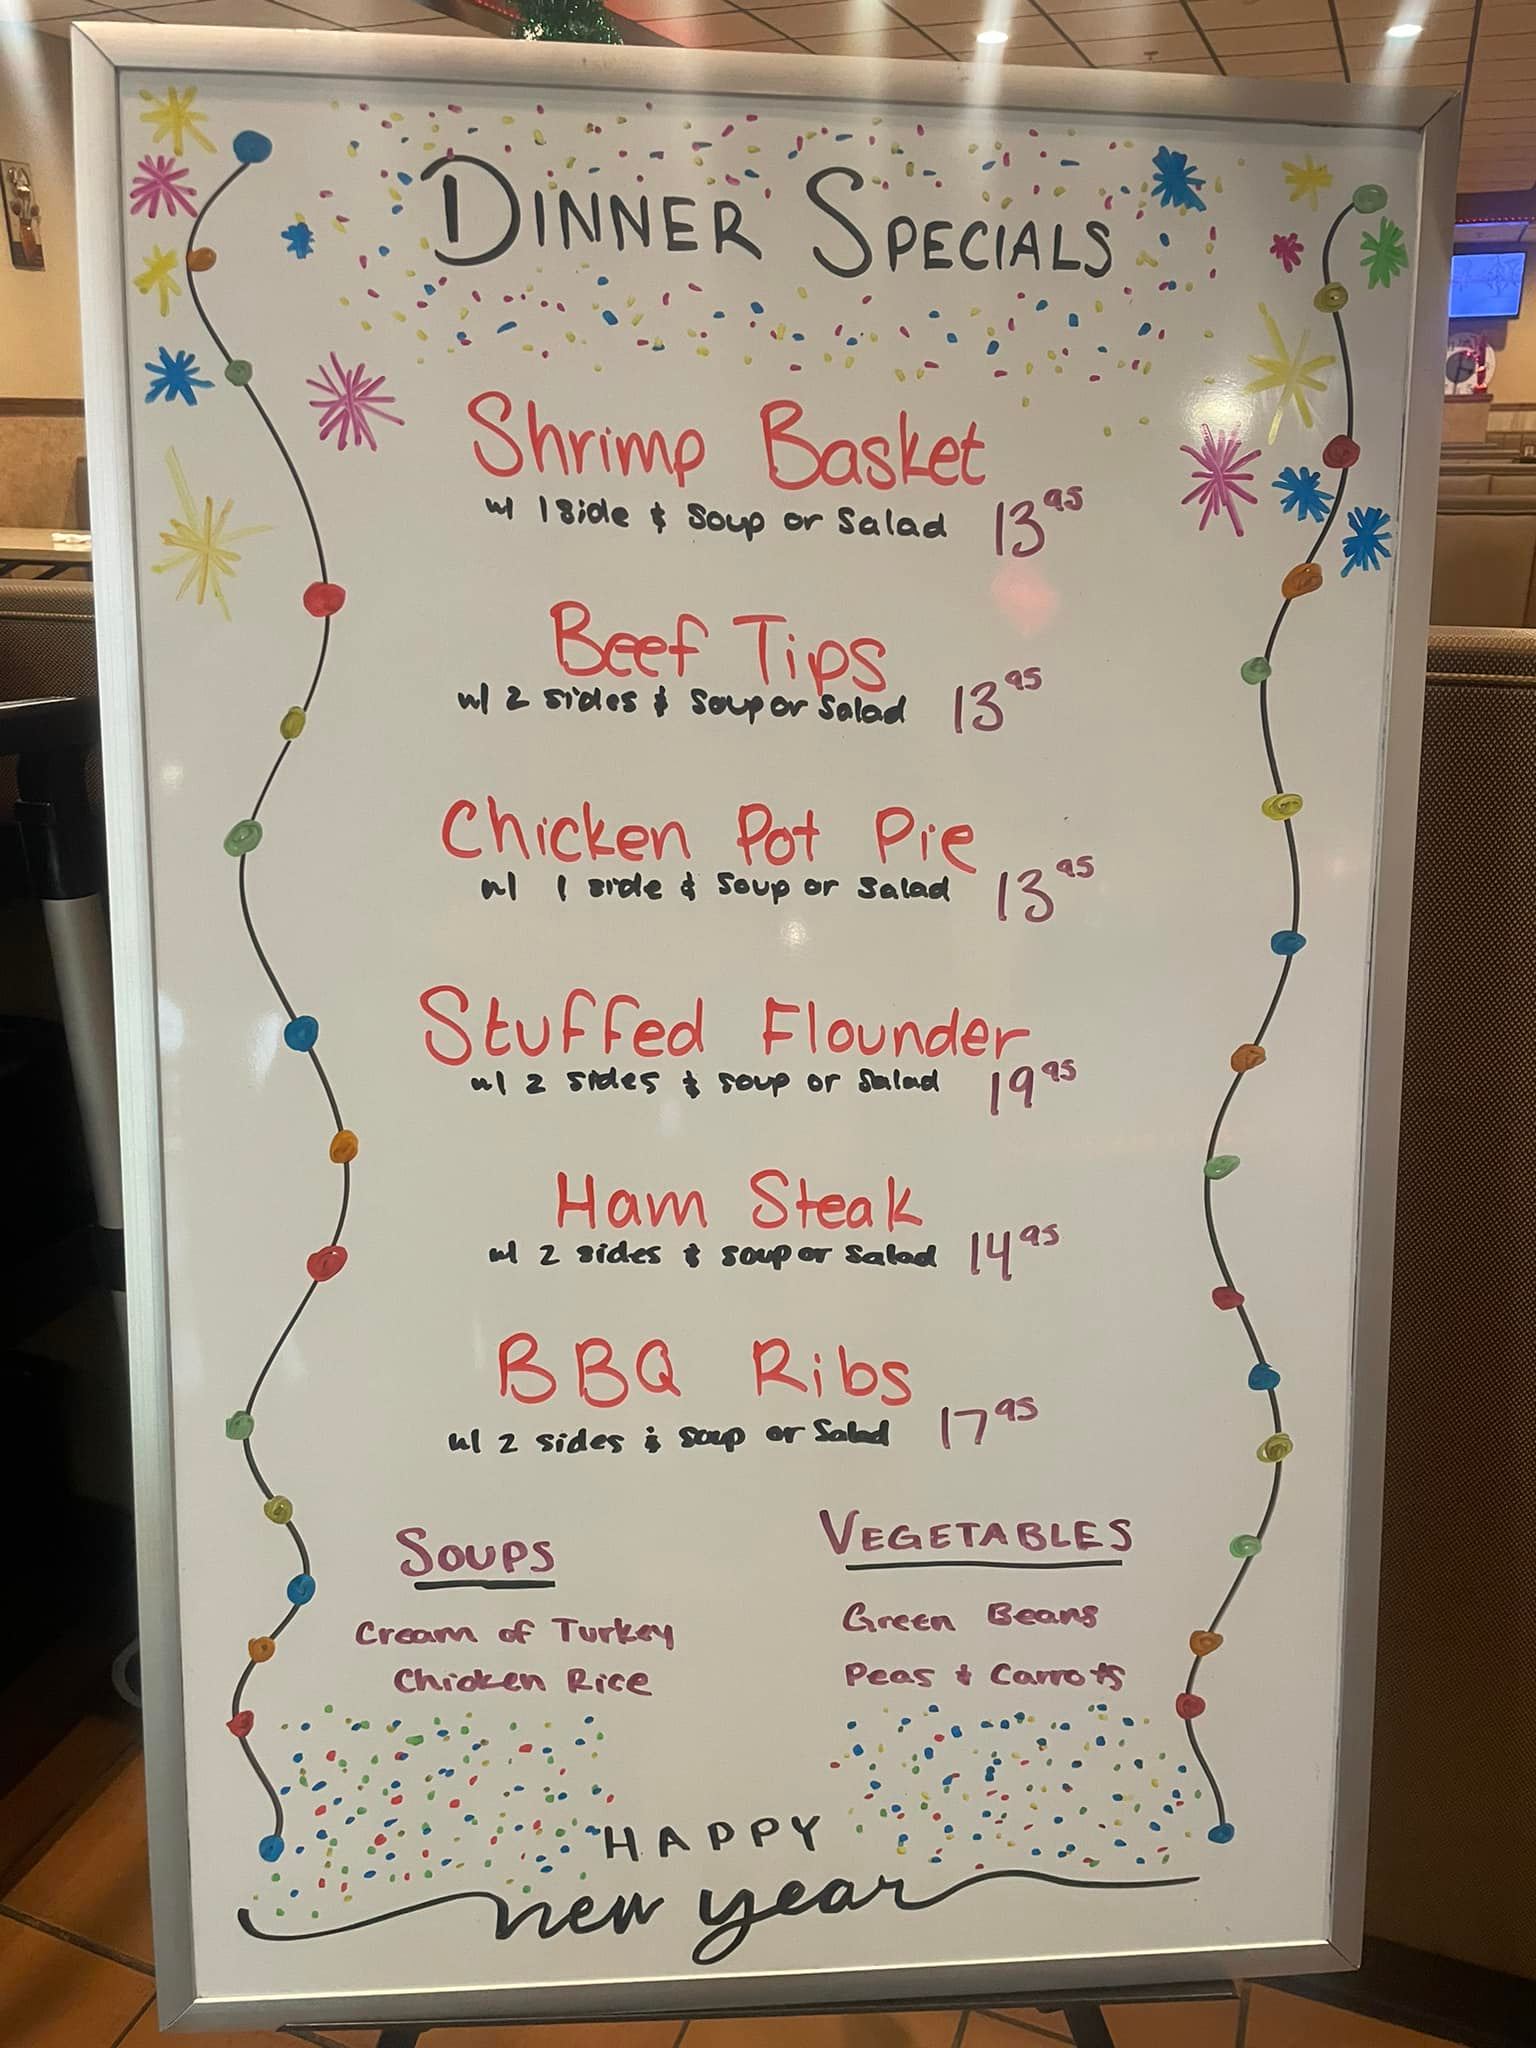 DINNER SPECIALS
Shrimp Basket
w/ 1 side & Soup or Salad 13 95
Beef Tips
w/ 2 sides & Soup or Salad 13 95
Chicken Pot Pie
w/ 1 side & Soup or Salad 13 95
Stuffed Flounder
w/ 2 sides & soup or Salad 19 95
Ham Steak
w/ 2 sides & soup or Salad 14 95
BBQ Ribs
w/ 2 sides & soup or Salad 17 95
SOUPS
Cream of Turkey
Chicken Rice
VEGETABLES
Green Beans
Peas & Carrots
HAPPY
new year